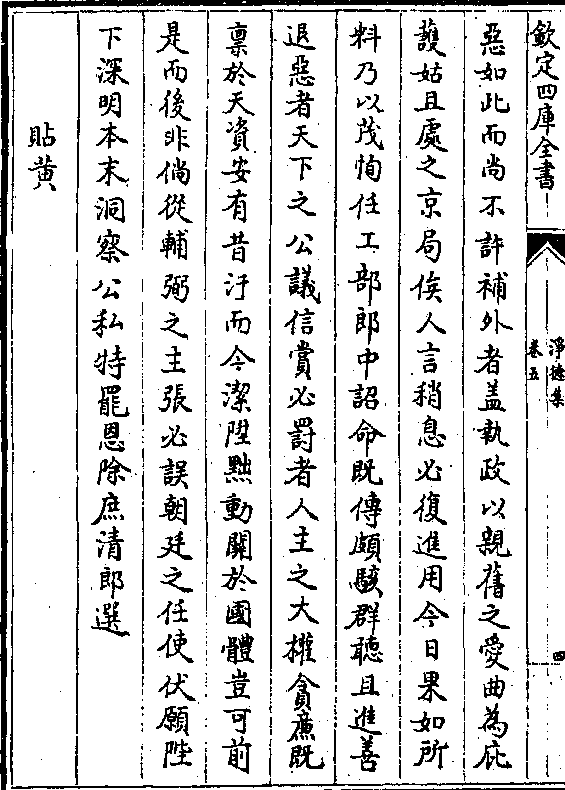 欽定四庫全書
淨德集
卷五
四
惡如此而尚不許補外者盖執政以親舊之愛曲為庇
䕶姑且處之京局俟人言稍息必復進用今日果如所
料乃以茂恂任工部郎中詔命既傳頗駭群聽且進善
退惡者天下之公議信賞必罰者人主之大權貪廉既
禀於天資安有昔汙而今潔陞黜動關於國體豈可前
是而後非倘從輔弼之主張必誤朝廷之任使伏願陛
下深明本末洞察公私特罷恩除庶清郎選
貼黄